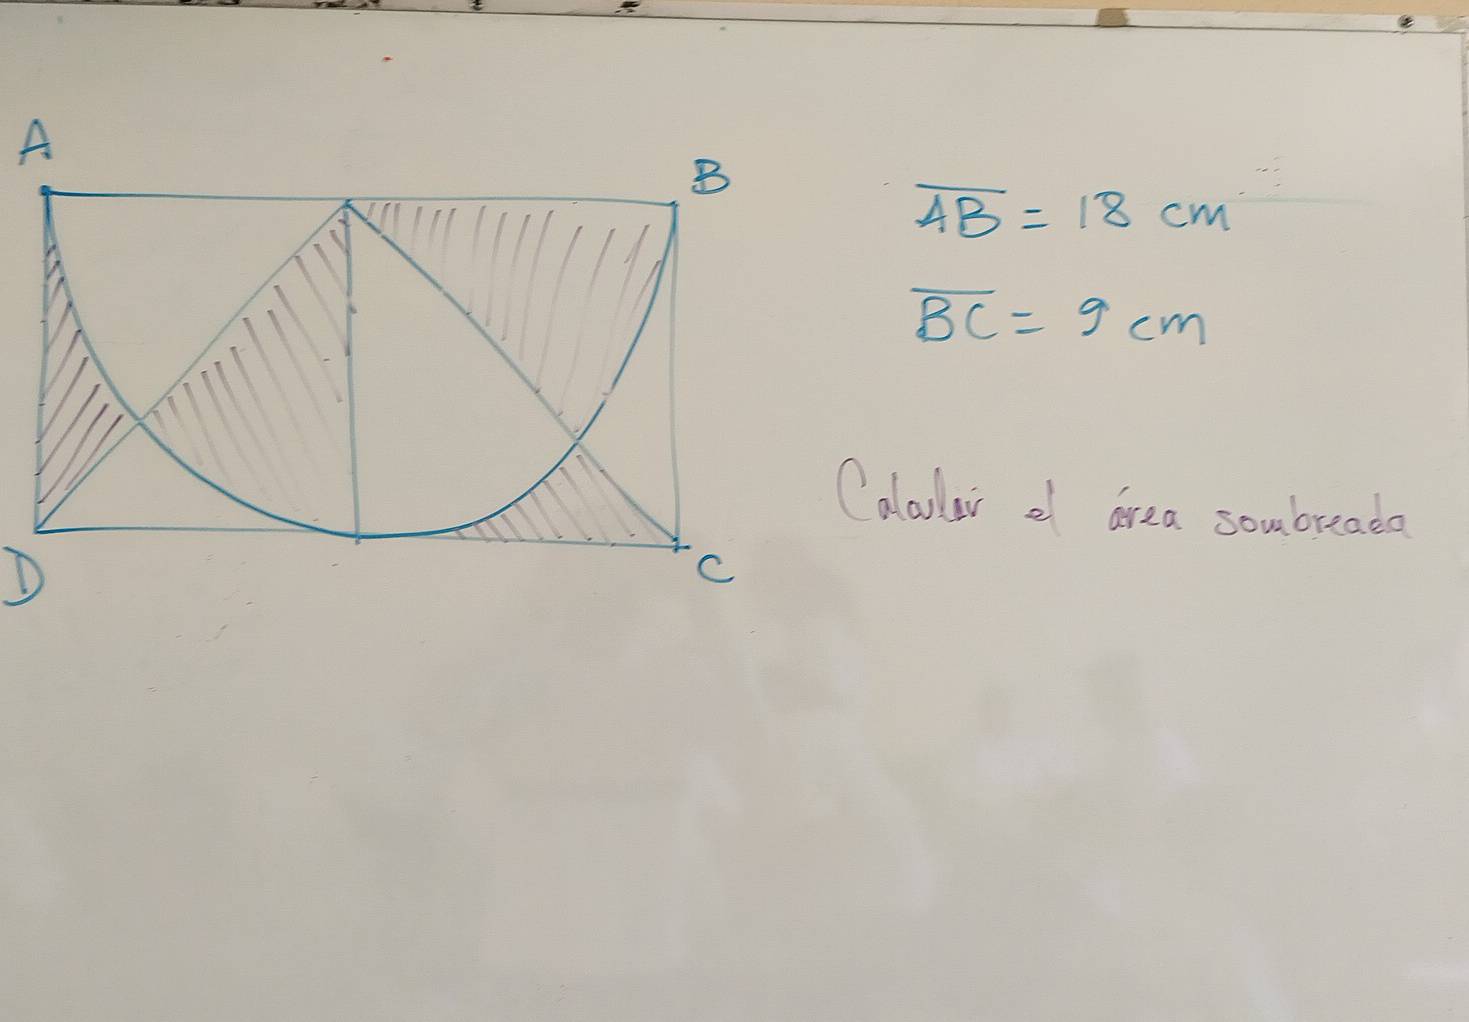 A
B
AB = 18 cm
BC = 9 cm
Calcular el área sombreada
D
C